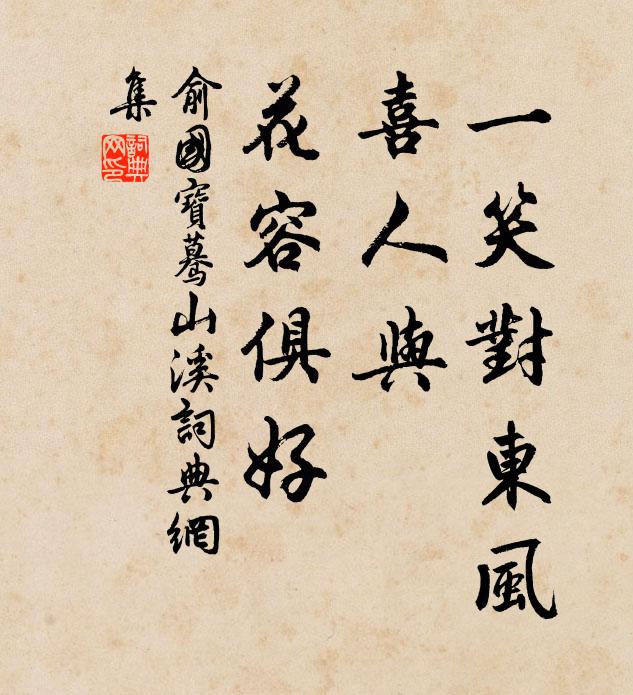 一笑對東風
喜人與
花容俱好
俞國寶驀山溪詞典網
集
詞典
网印